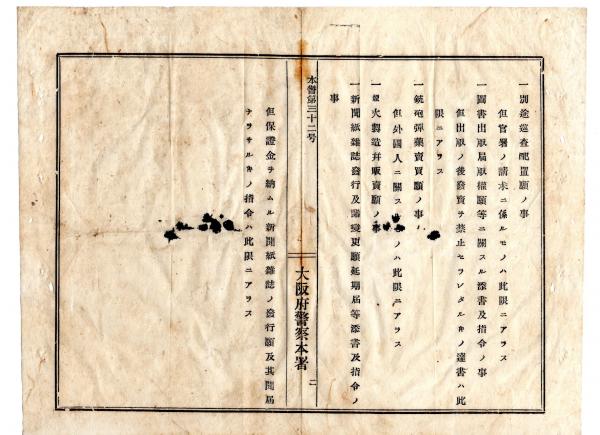 一別途巡查配置願ノ事
但官署ノ請求ニ係ルモノハ此限ニアラス
一圖書出版届版權願等ニ關スル添書及指令ノ事
但出版ノ後發賣ヲ禁止セラレタルキノ達書ハ此
限ニアラス
一銃砲彈藥賣買願ノ事
但外國人ニ關スルモノハ此限ニアラス
一烟火製造幷販賣願ノ事
一新聞紙雜誌發行及諸變更願延期届等添書及指令ノ
事
本警第三十二号
大阪府警察本署
二
但保證金ヲ納ムル新聞紙雜誌ノ發行願及其開届
ナラサルキノ指令ハ此限ニアラス